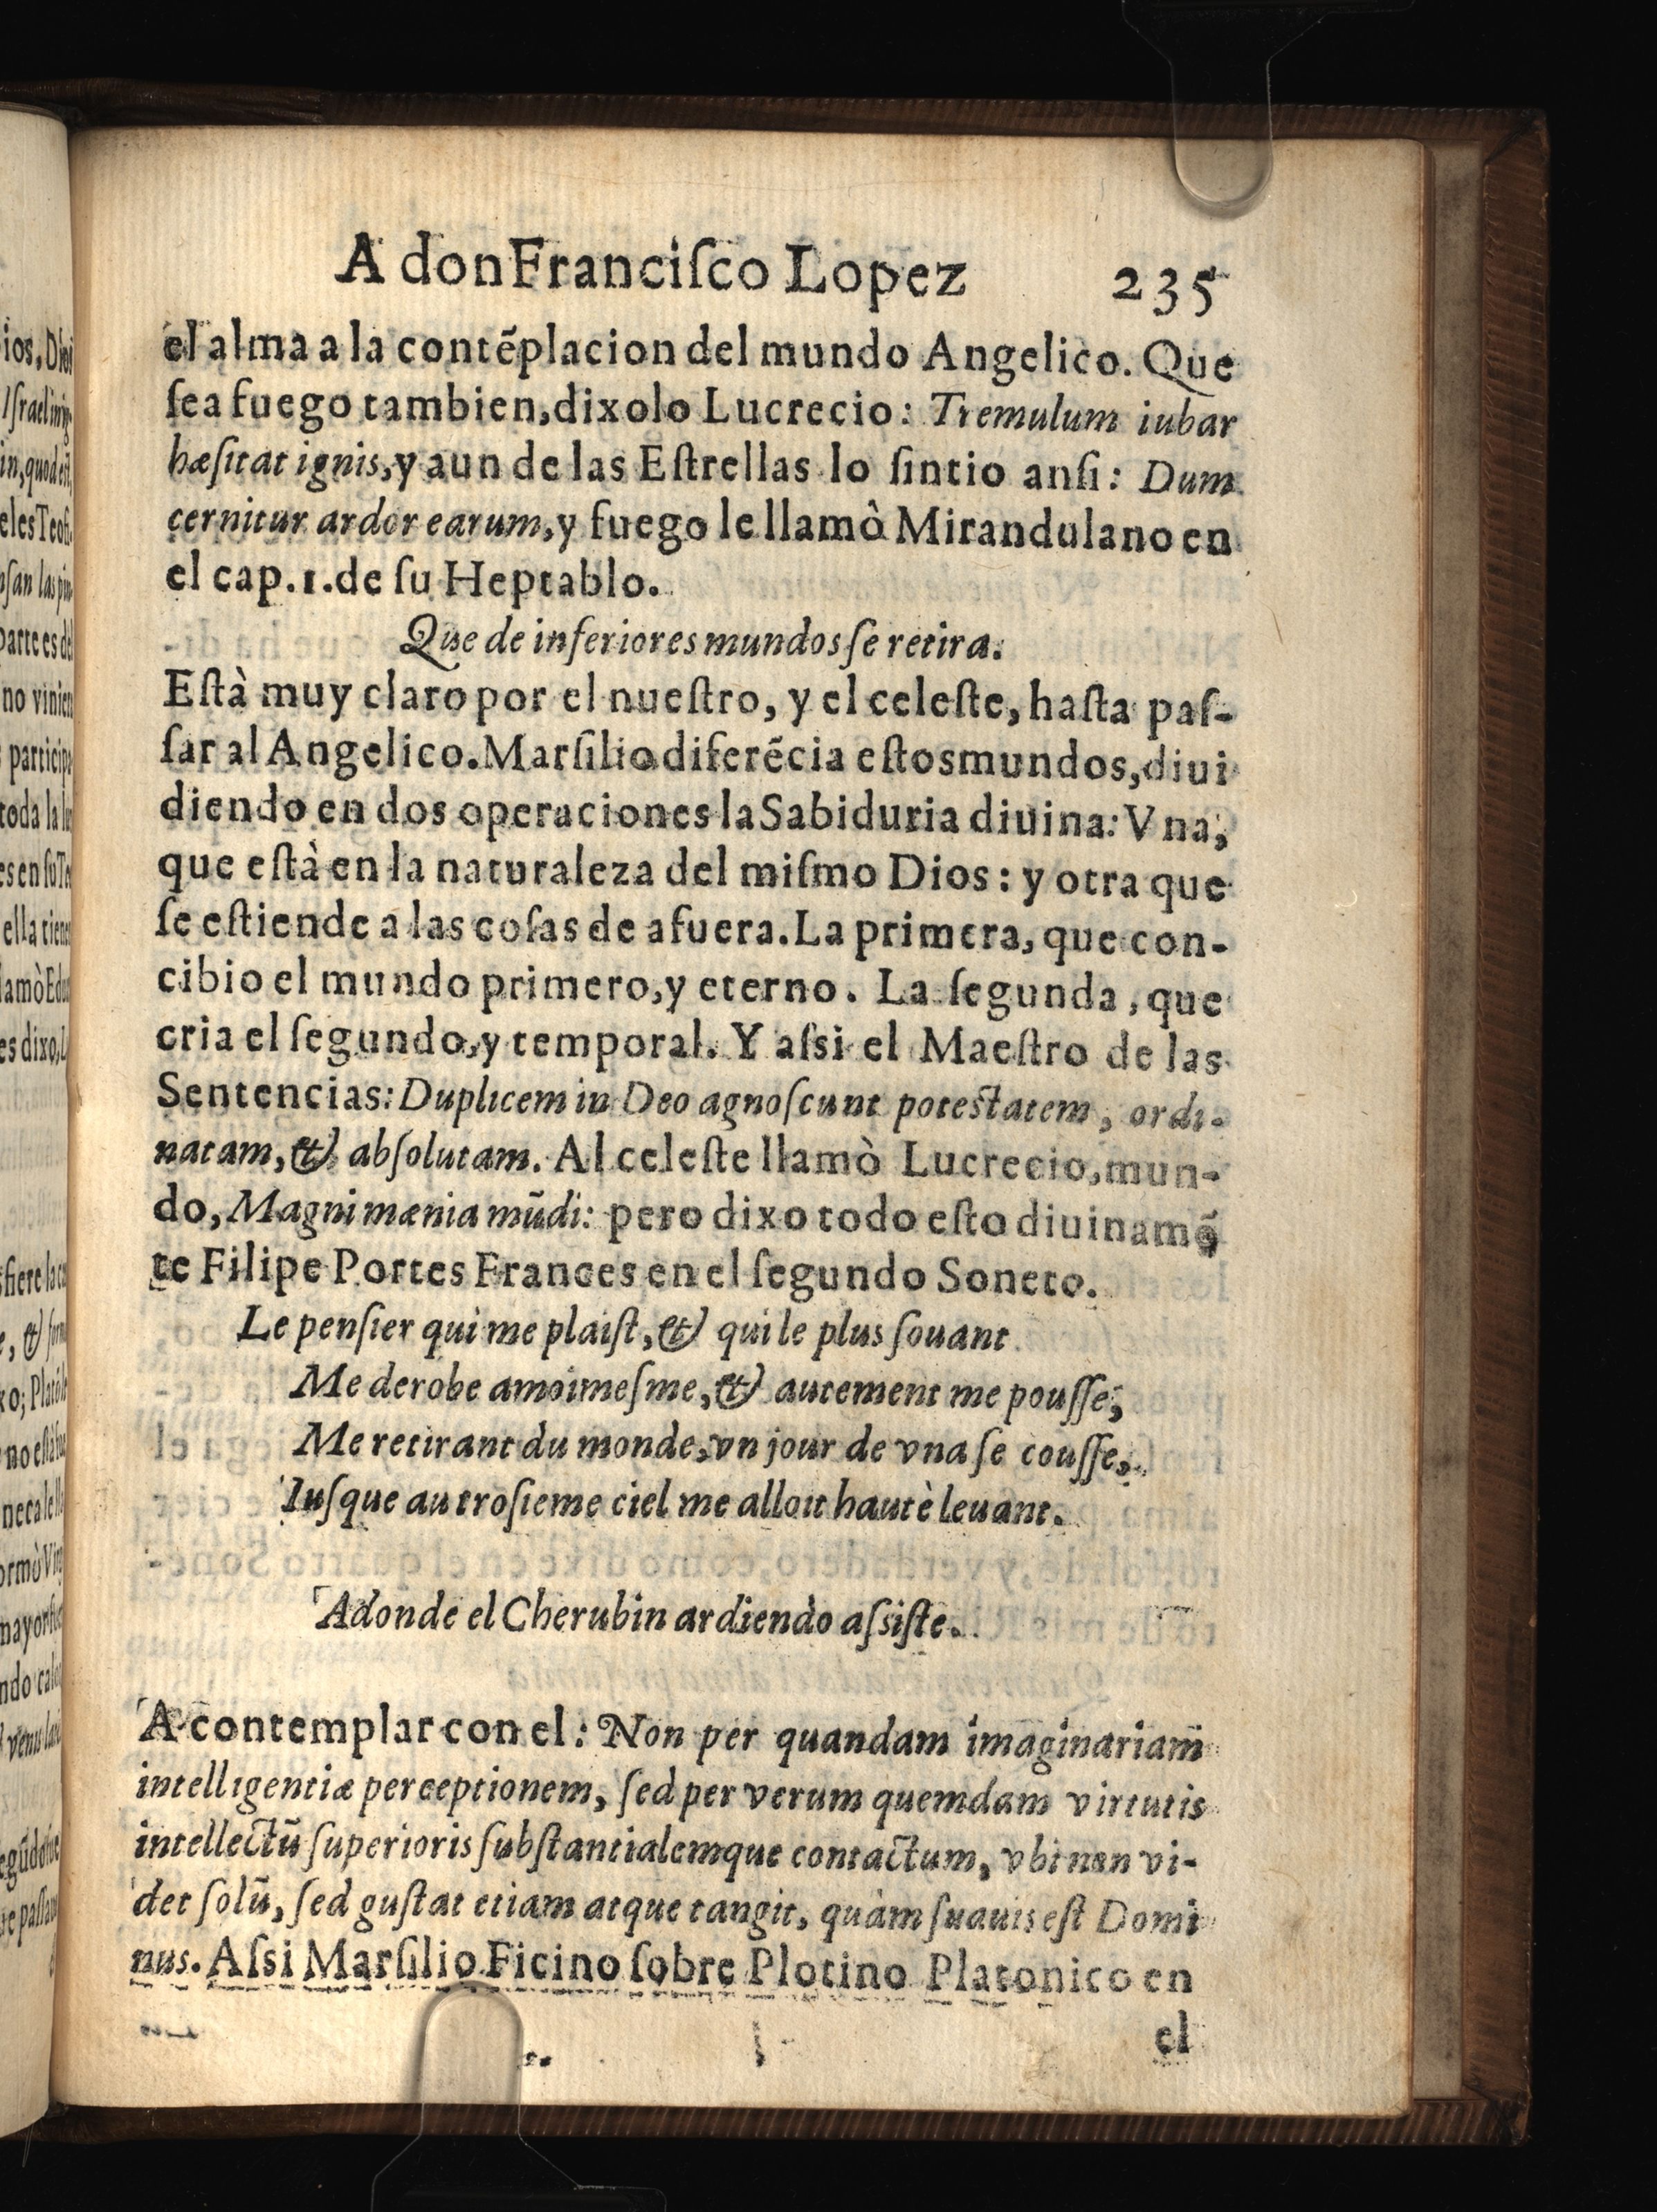 A don Franciſco Lopez 235
el alma a la contẽplacion del mundo Angelico. Que
ſea fuego tambien, dixolo Lucrecio: Tremulum iubar
hæſitat ignis, y aun de las Eſtrellas lo ſintio anſi: Dum
cernitur ardor earum, y fuego le llamò Mirandulano en
el cap. 1. de ſu Heptablo.
Que de inferiores mundos ſe retira.
Eſtà muy claro por el nueſtro, y el celeſte, haſta paſ-
ſar al Angelico. Marſilio diferẽcia eſtos mundos, diui
diendo en dos operaciones la Sabiduria diuina: Vna,
que eſtà en la naturaleza del miſmo Dios: y otra que
ſe eſtiende a las coſas de afuera. La primera, que con-
cibio el mundo primero, y eterno. La ſegunda, que
cria el ſegundo, y temporal. Y aſsi el Maeſtro de las
Sentencias: Duplicem in Deo agnoſcunt poteſtatem, ordi-
natam, & abſolutam. Al celeſte llamò Lucrecio, mun-
do, Magni mænia mũdi: pero dixo todo eſto diuinamẽ
te Filipe Portes Frances en el ſegundo Soneto.
Le penſier qui me plaiſt, & qui le plus ſouant
Me derobe amoimeſme, & autement me pouſſe,
Me retirant du monde, vn jour de vna ſe couſſe,
Iuſque au troſieme ciel me alloit hautè leuant.
Adonde el Cherubin ardiendo aſsiſte.
A contemplar con el: Non per quandam imaginariam
intelligentiæ perceptionem, ſed per verum quemdam virtutis
intellectũ ſuperioris ſubſtantialemque contactum, vbi non vi-
det ſolũ, ſed guſtat etiam atque tangit, quàm ſuauis eſt Domi
nus. Aſsi Marſilio Ficino ſobre Plotino Platonico en
el